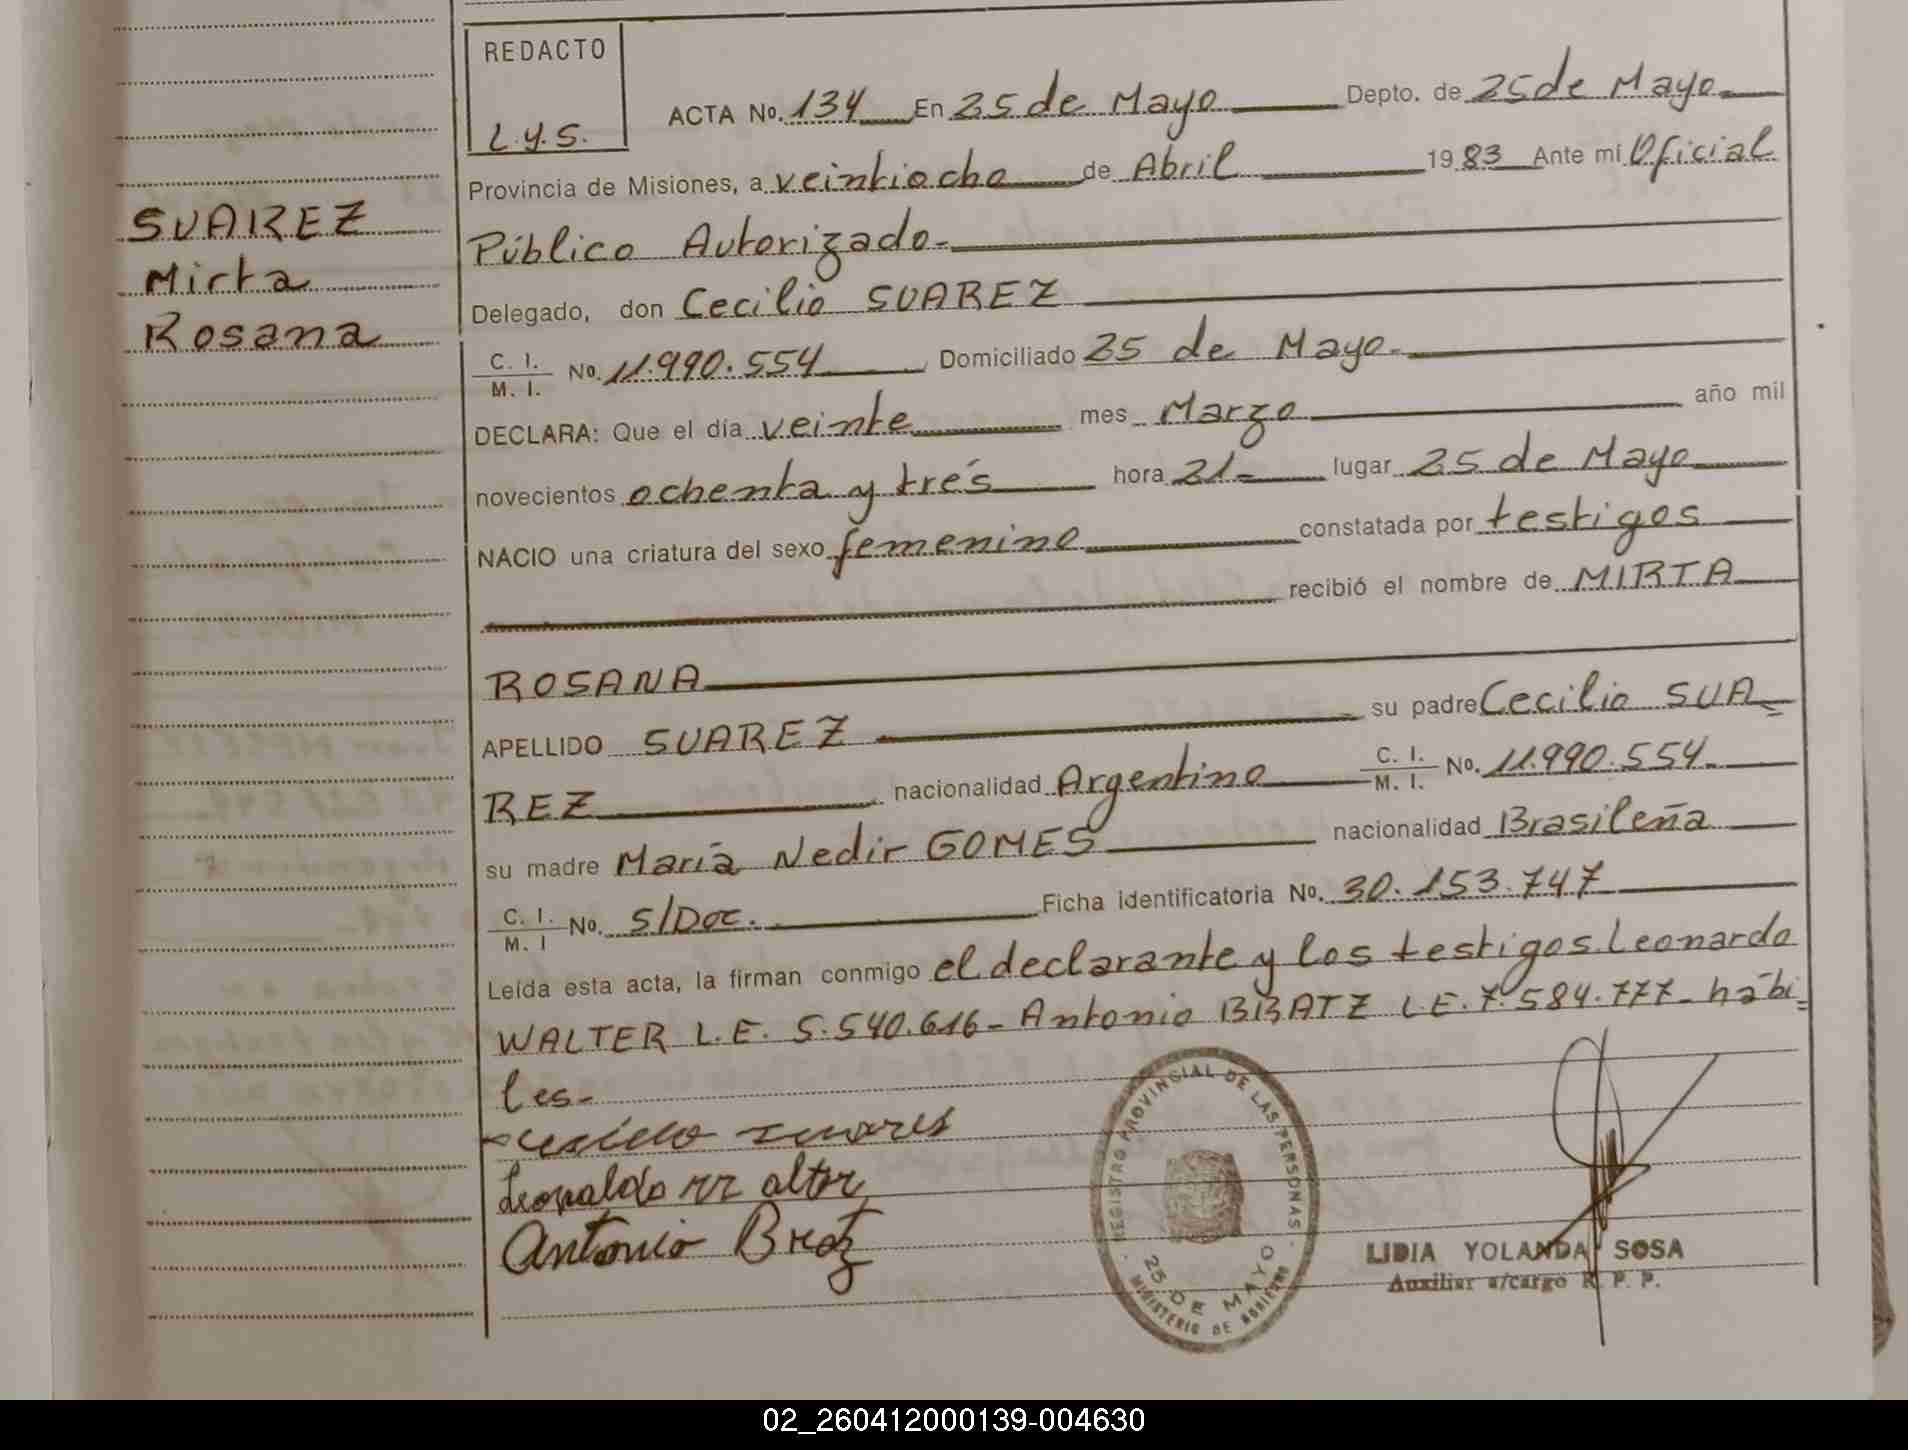 REDACTO
L.y.S.
ACTA No. 134 En 25 de Mayo Depto. de 25 de Mayo
Provincia de Misiones, a veintiocho de Abril 1983 Ante mi Oficial
Público Autorizado.
Delegado, don Cecilio SUAREZ
C. I. / M. I. No. 11.990.554 Domiciliado 25 de Mayo.
DECLARA: Que el día veinte mes Marzo año mil
novecientos ochenta y trés hora 21.- lugar 25 de Mayo
NACIO una criatura del sexo femenino constatada por testigos
recibió el nombre de MIRTA
ROSANA
APELLIDO SUAREZ su padre Cecilio SUA=
REZ nacionalidad Argentino C. I. / M. I. No. 11.990.554.
su madre María Nedir GOMES nacionalidad Brasileña
C. I. / M. I No. S/Doc. Ficha identificatoria No. 30.153.747
Leída esta acta, la firman conmigo el declarante y los testigos Leonardo
WALTER L.E. 5.540.616- Antonio BRATZ L.E. 7.584.777- hábi=
les-
SUAREZ
Mirta
Rosana
Antonio
REGISTRO PROVINCIAL DE LAS PERSONAS
25 DE MAYO
MINISTERIO DE GOBIERNO
LIDIA YOLANDA SOSA
Auxiliar a/cargo R. P. P.
02_260412000139-004630